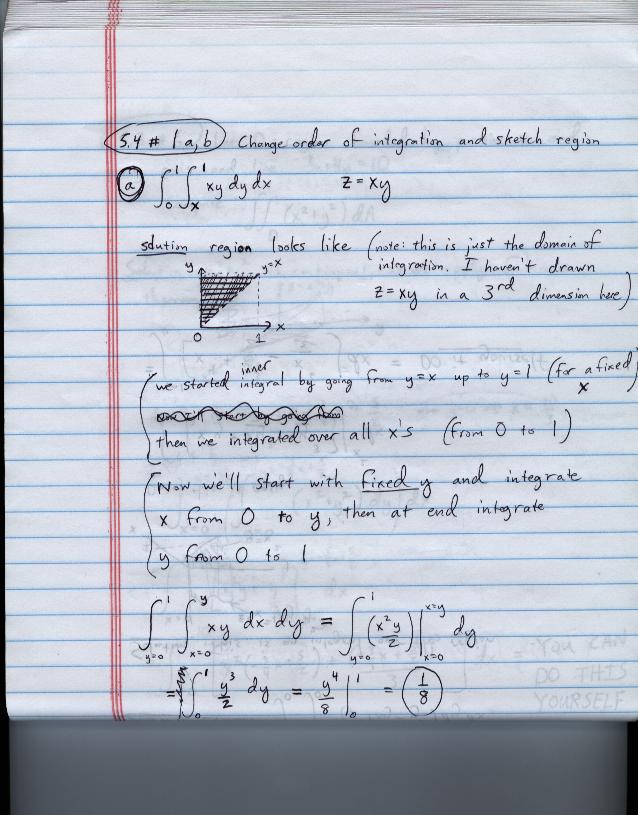 5.4 # 1 a, b Change order of integration and sketch region
a ∫₀¹ ∫ₓ¹ xy dy dx z = xy
solution region looks like (note: this is just the domain of
integration. I haven't drawn
z = xy in a 3rd dimension here)
y y=x
x
0 1
we started inner integral by going from y=x up to y=1 (for a fixed x)
Now I'll start by going from
then we integrated over all x's (from 0 to 1)
Now we'll start with fixed y and integrate
x from 0 to y, then at end integrate
y from 0 to 1
∫_{y=0}^{1} ∫_{x=0}^{y} xy dx dy = ∫_{y=0}^{1} (x²y/2)|_{x=0}^{x=y} dy
= ∫₀¹ y³/2 dy = y⁴/8 |₀¹ = 1/8
YOU CAN
DO THIS
YOURSELF